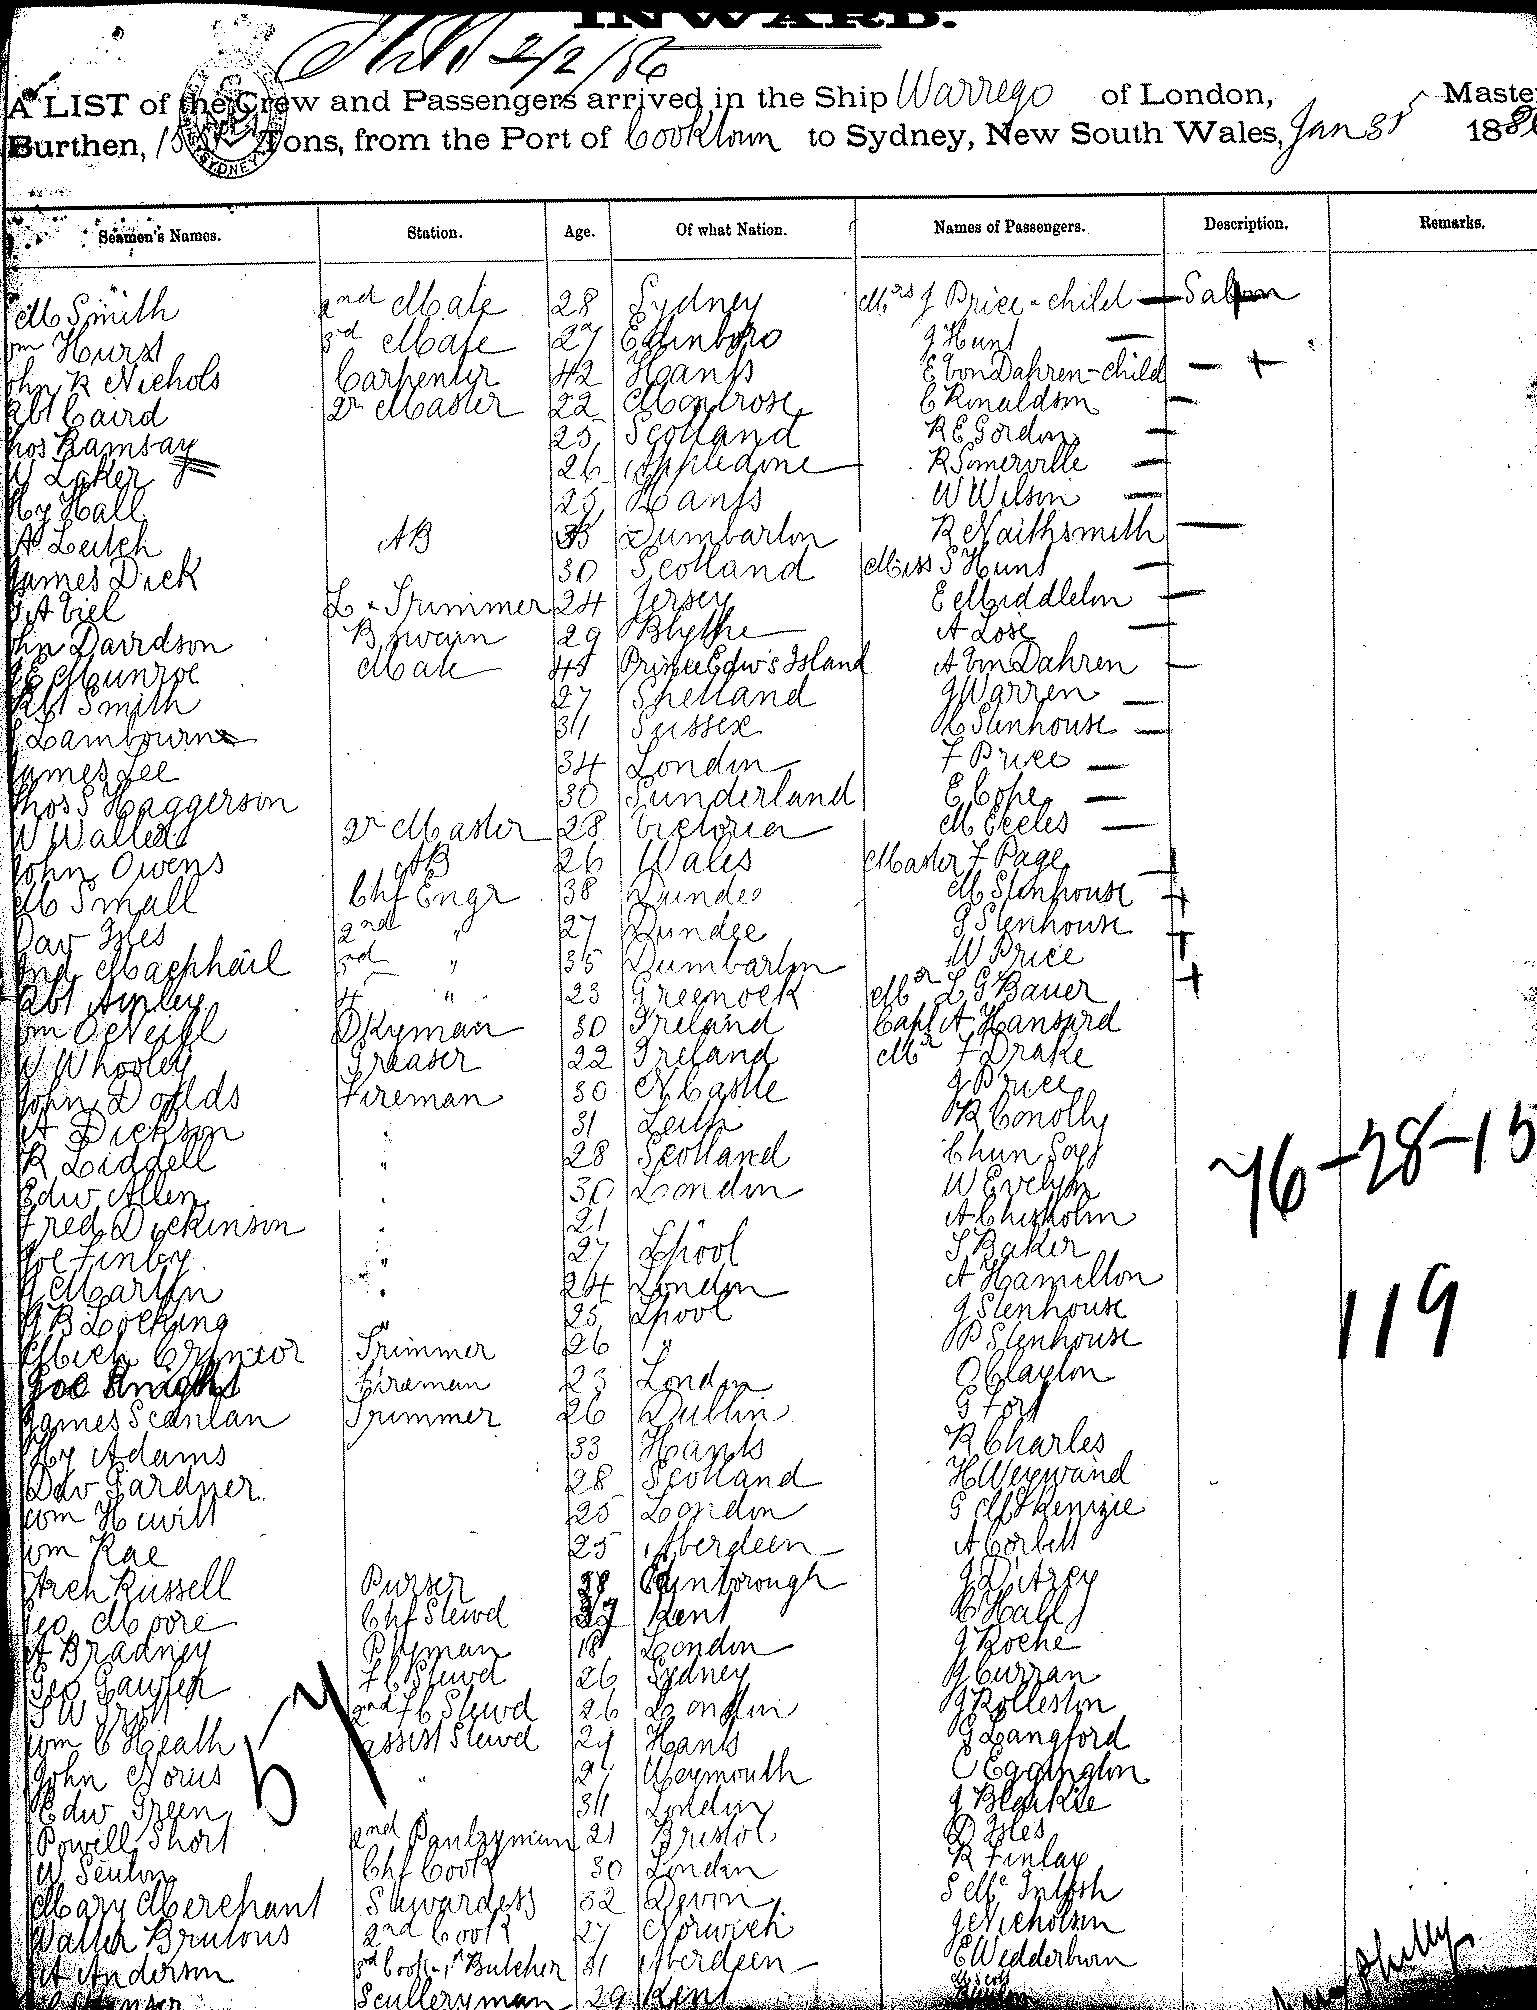 INWARD.
2/2/86
A LIST of the Crew and Passengers arrived in the Ship Warrego of London, Master
Burthen, Tons, from the Port of Cooktown to Sydney, New South Wales, Jan 31st 1886
SYDNEY
Seamen's Names. Station. Age. Of what Nation. Names of Passengers. Description. Remarks.
M Smith 2nd Mate 28 Sydney Mrs J Price - child — Saloon
Hurst 3rd Mate 27 Edinboro J Hunt —
John R Nichols Carpenter 42 Hants E von Dahren - child — +
Robt Caird Qr Master 22 Montrose C Ronaldson —
Thos Ramsay 25 Scotland R E Gordon —
W Laker 26 Appledore R Somerville —
Hy Hall 25 Hants W Wilson —
A Leitch AB 33 Dumbarton R Naithsmith —
James Dick 30 Scotland Miss S Hunt —
L & Trimmer 24 Jersey E Middleton —
John Davidson B Swain 29 Blythe A Lose —
Munroe Mate 45 Prince Edw's Island A von Dahren —
Robt Smith 27 Shetland J Warren —
Lambourne 31 Sussex Stenhouse —
James Lee 34 London F Price —
Thos S Haggerson 30 Sunderland E Cope —
W Waller Qr Master 28 Victoria M Eccles —
John Owens AB 26 Wales Master F Page
M Small Chf Engr 38 Dundee M Stenhouse +
Dav Isles 2nd " 27 Dundee G Stenhouse +
Jno Macphail 3rd " 35 Dumbarton W Price +
Robt 4 " 23 Greenock Mr L G Bauer +
Wm O'Neill Dkyman 30 Ireland Capt A Hansard
W Whooley Greaser 22 Ireland Mr F Drake
John Dodds Fireman 30 N Castle J Price
A Dickson " 31 Leith R Conolly
R Liddell " 28 Scotland Chun
Edw Allen " 30 London W Evelyn
Fred Dickinson " 21 A Chisholm
Joe Finlay " 27 Lpool S Baker
J Martin " 24 London A Hamilton
G B Locking " 25 Lpool J Stenhouse
Mich Trimmer 26 " P Stenhouse
Joe Knight Fireman 23 London O Clayton
James Scanlan Trimmer 26 Dublin G Ford
Hy Adams 33 Hants R Charles
Dav Gardner 28 Scotland H Weywand
Wm Hewitt 25 London G McKenzie
Wm Rae 25 Aberdeen A Corbett
Arch Russell Purser Edinborough
Geo Moore Chf Stewd Kent C Hall
A Bradney Pkyman 18 London J Roche
Geo Fc Stewd 26 Sydney J Curran
S W Trott 2nd Fc Stewd 26 London J Rolleston
Wm C Heath assist Stewd 24 Hants G Langford
John Norris " 27 Weymouth C Eggington
Edw Green " 31 London J Blaikie
Powell Short 2nd Pantryman 21 Bristol D Isles
W Seuton Chf Cook 30 London R Finlay
Mary Merchant Stewardess 32 Devon S McIntosh
Walter Brutons 2nd Cook 27 Norwich J Nicholson
A Anderson 3rd Cook & Butcher 31 Aberdeen E Wedderburn
Scullerman 29 Kent
76-28-15
119
57